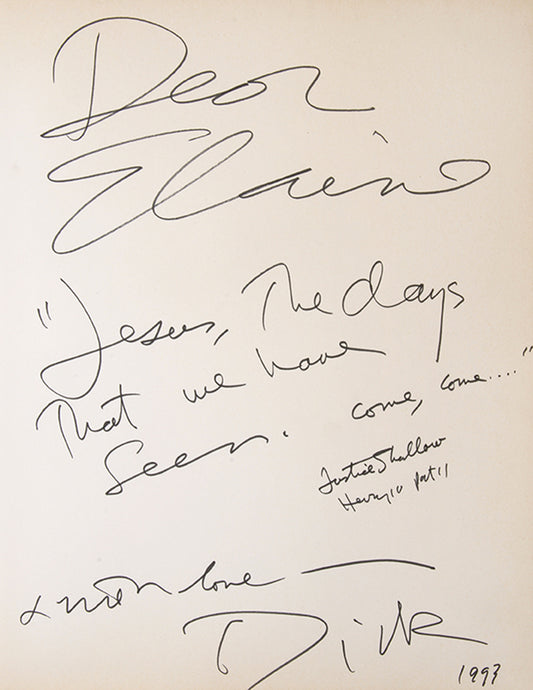 Dear
Elaine
"Jesus, The days
That we have
Seen. come, come...."
Justice Shallow
Henry IV Part II
& much love —
Dick
1993